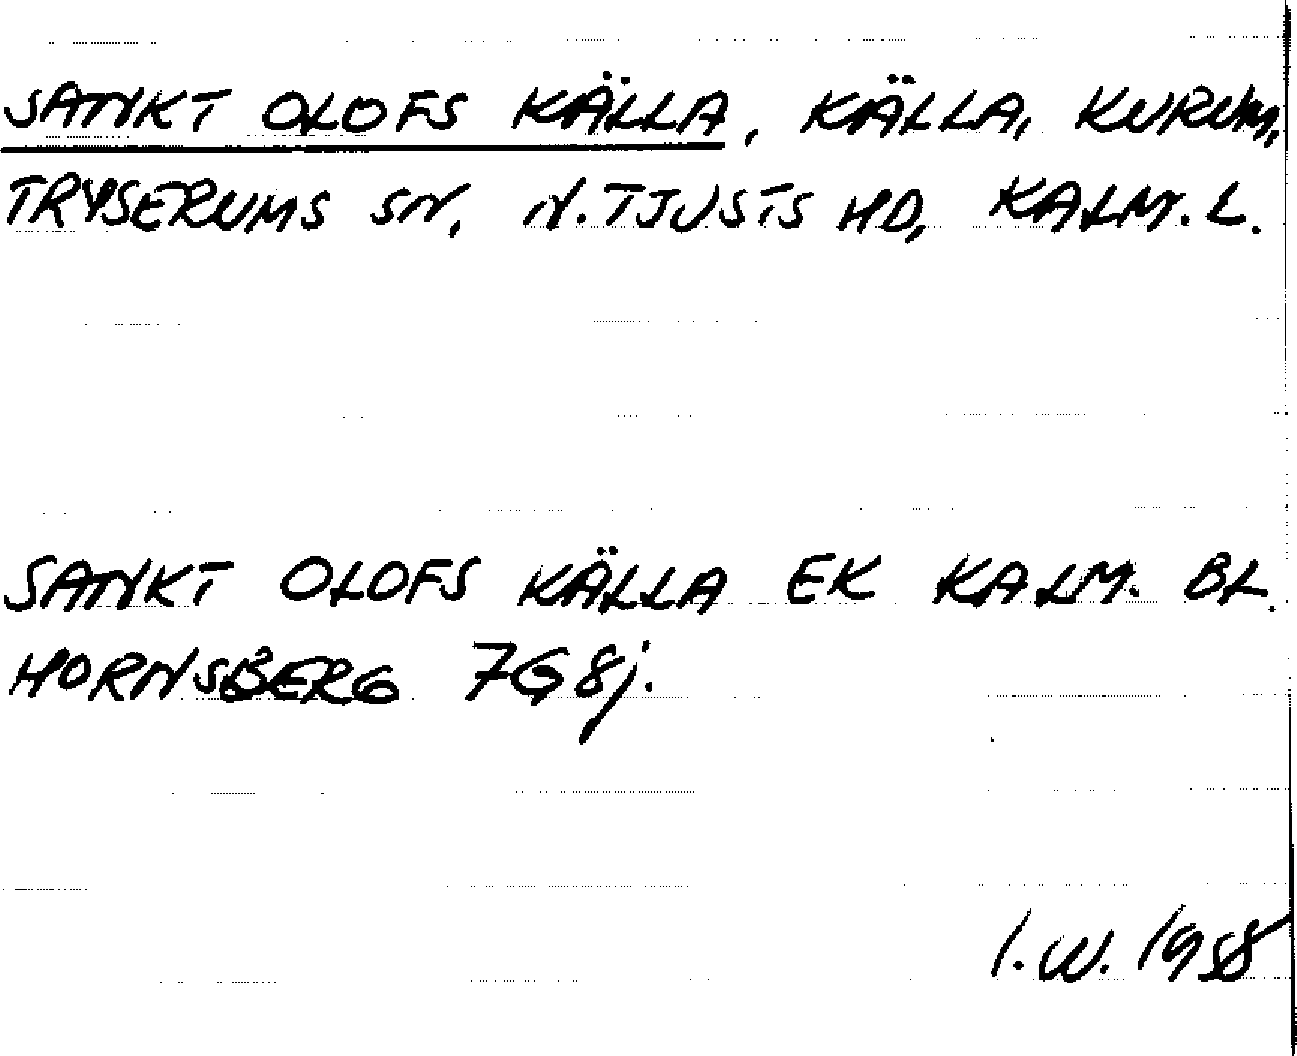 SANKT OLOFS KÄLLA, KÄLLA, KURUM,
TRYSERUMS SN, N. TJUSTS HD, KALM. L.
SANKT OLOFS KÄLLA EK KALM. BL.
HORNSBERG 7G8j.
I.W. 1958